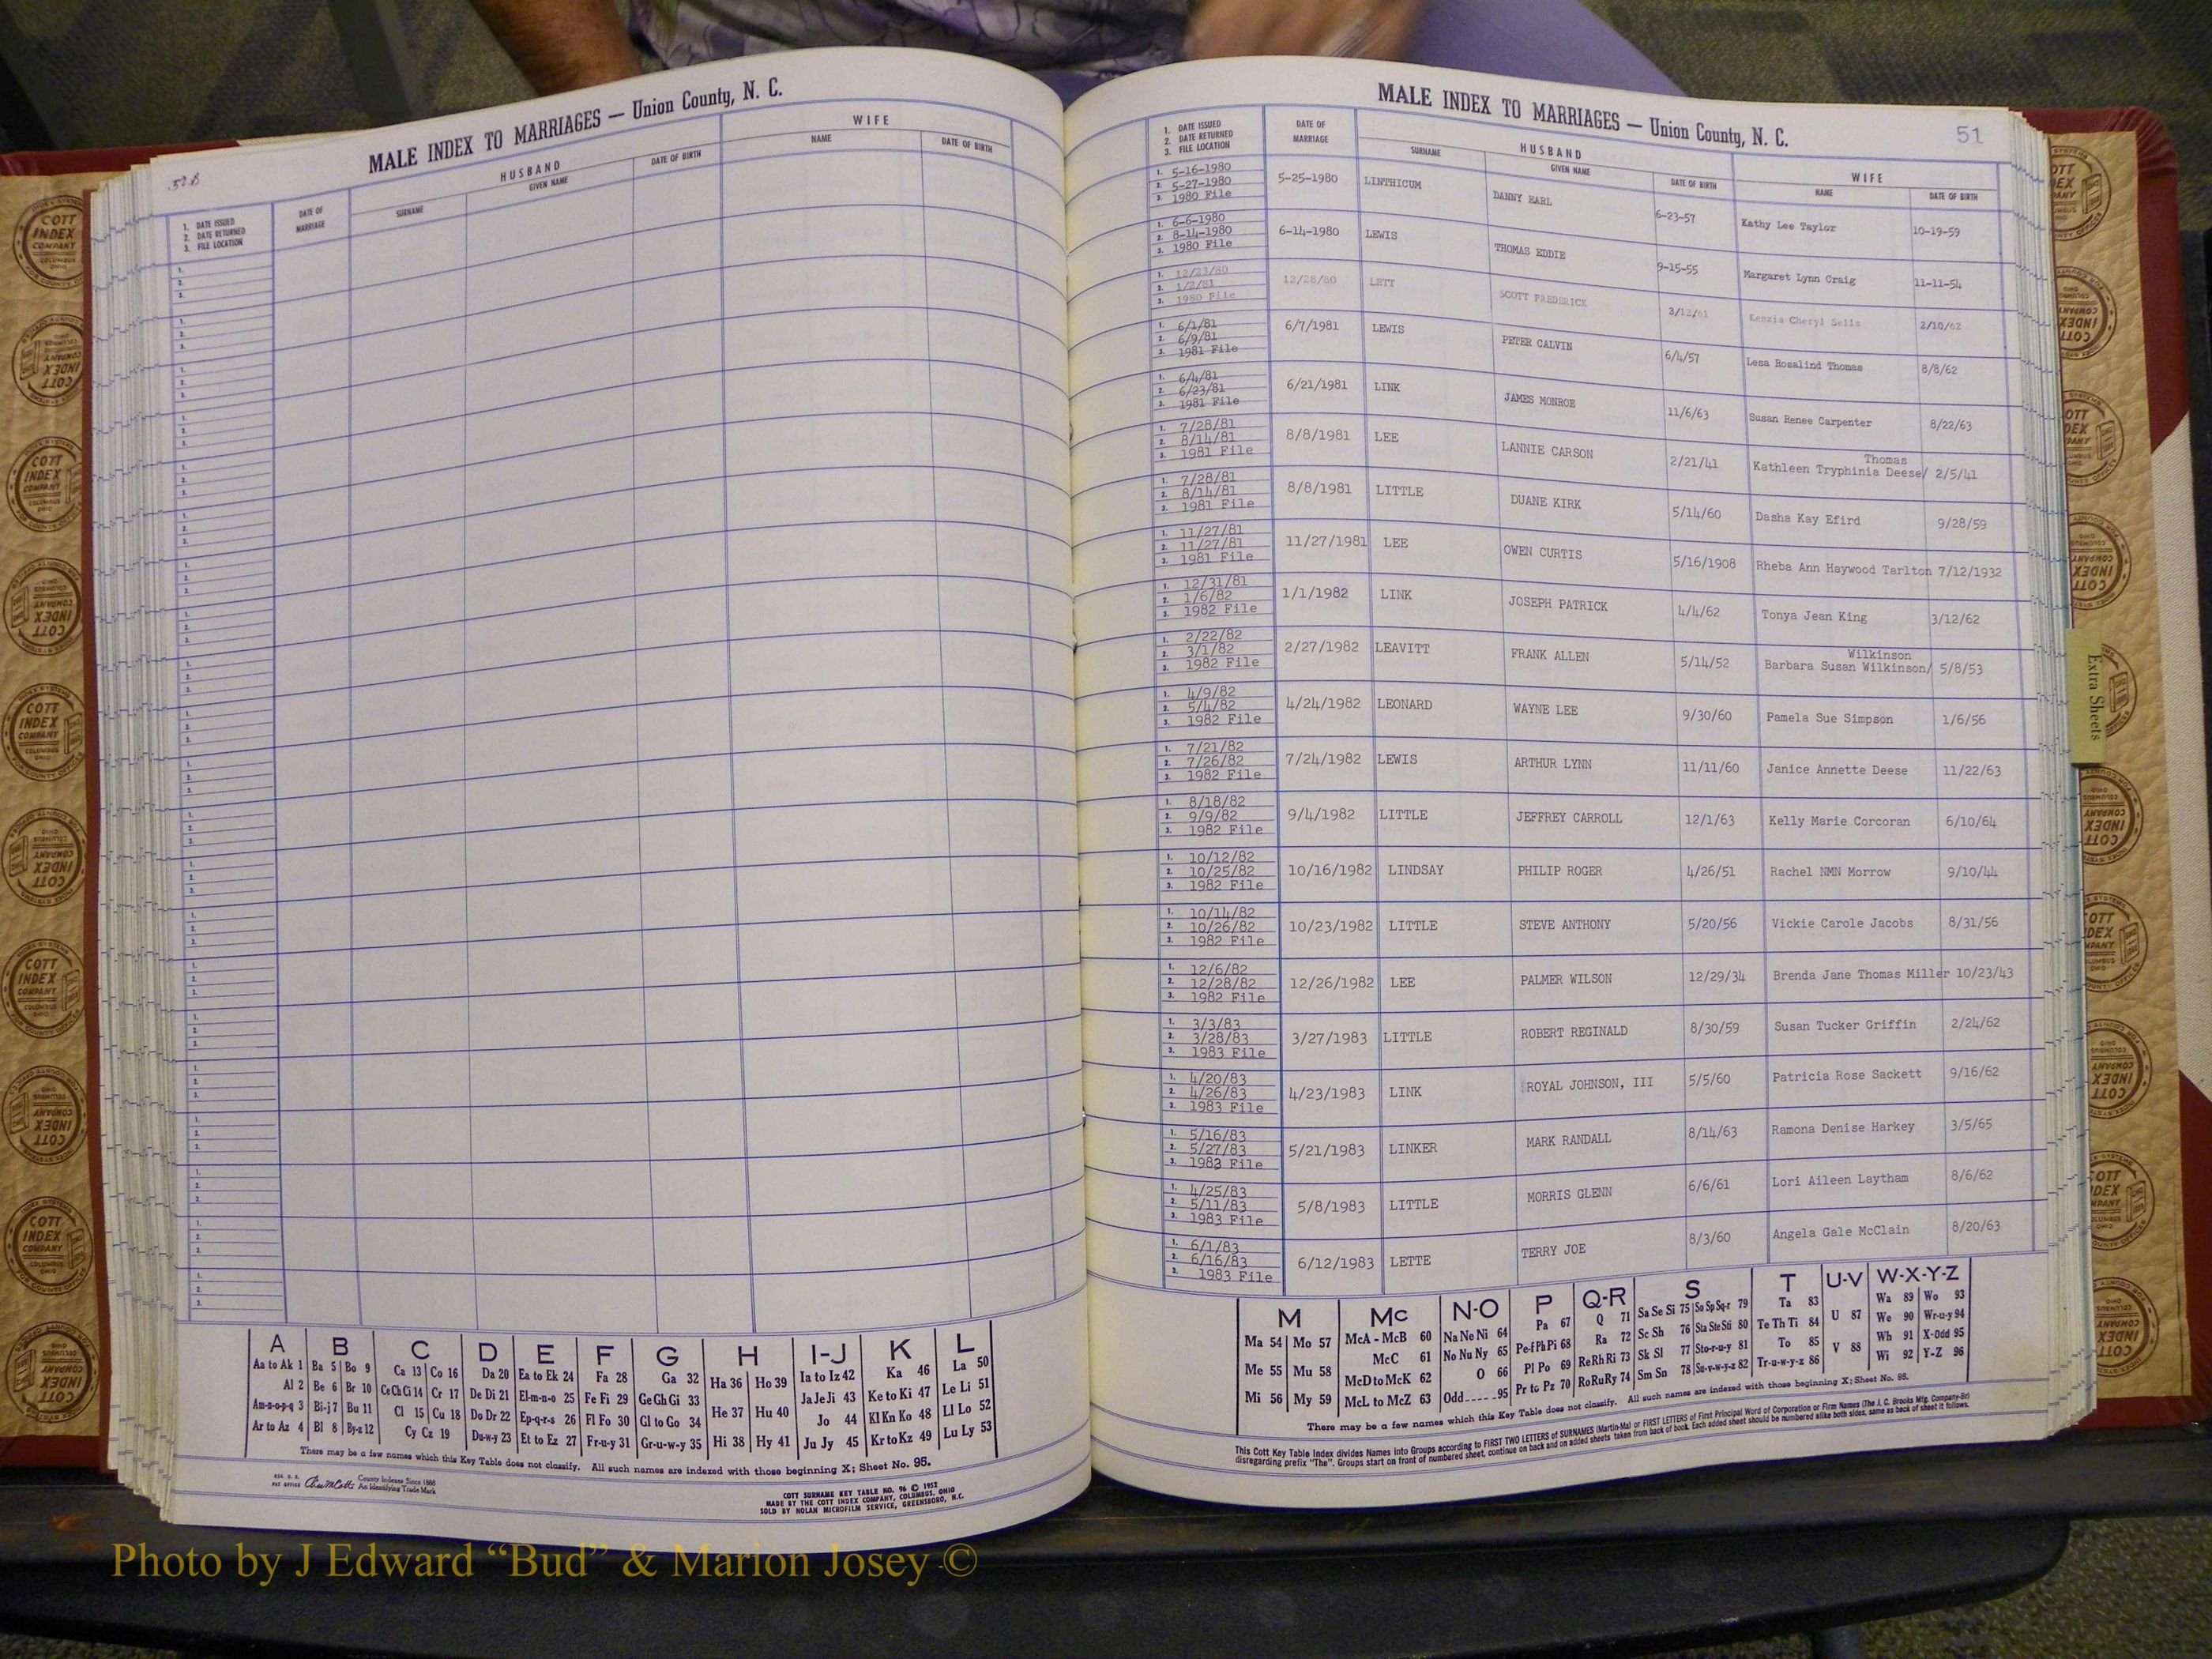 MALE INDEX TO MARRIAGES — Union County, N. C.
HUSBAND WIFE
1. DATE ISSUED
2. DATE RETURNED
3. FILE LOCATION
DATE OF MARRIAGE SURNAME GIVEN NAME DATE OF BIRTH NAME DATE OF BIRTH
A B C D E F G H I-J K L
Aa to Ak 1 Ba 5 Bo 9 Ca 13 Co 16 Da 20 Ea to Ek 24 Fa 28 Ga 32 Ha 36 Ho 39 Ia to Iz 42 Ka 46 La 50
Al 2 Be 6 Br 10 Ce Ch Ci 14 Cr 17 De Di 21 El-m-n-o 25 Fe Fi 29 Ge Gh Gi 33 He 37 Hu 40 Ja Je Ji 43 Ke to Ki 47 Le Li 51
Am-n-o-p-q 3 Bi-j 7 Bu 11 Cl 15 Cu 18 Do Dr 22 Ep-q-r-s 26 Fl Fo 30 Gl to Go 34 Hi 38 Hy 41 Jo 44 Kl Kn Ko 48 Ll Lo 52
Ar to Az 4 Bl 8 By-z 12 Cy Cz 19 Du-w-y 23 Et to Ez 27 Fr-u-y 31 Gr-u-w-y 35 Ju Jy 45 Kr to Kz 49 Lu Ly 53
There may be a few names which this Key Table does not classify. All such names are indexed with those beginning X; Sheet No. 95.
County Indexes Since 1888
An Identifying Trade Mark
COTT SURNAME KEY TABLE NO. 96 © 1952
MADE BY THE COTT INDEX COMPANY, COLUMBUS, OHIO
SOLD BY NOLAN MICROFILM SERVICE, GREENSBORO, N.C.
MALE INDEX TO MARRIAGES — Union County, N. C. 51
1. DATE ISSUED
2. DATE RETURNED
3. FILE LOCATION
DATE OF MARRIAGE HUSBAND SURNAME GIVEN NAME DATE OF BIRTH WIFE NAME DATE OF BIRTH
1. 5-16-1980
2. 5-27-1980
3. 1980 File
5-25-1980 LINTHICUM DANNY EARL 6-23-57 Kathy Lee Taylor 10-19-59
1. 6-6-1980
2. 8-14-1980
3. 1980 File
6-14-1980 LEWIS THOMAS EDDIE 9-15-55 Margaret Lynn Craig 11-11-54
1. 12/23/80
2. 1/2/81
3. 1980 File
12/28/80 LETT SCOTT FREDERICK 3/12/61 Cheryl Sells 2/10/62
1. 6/1/81
2. 6/9/81
3. 1981 File
6/7/1981 LEWIS PETER CALVIN 6/4/57 Lesa Rosalind Thomas 8/8/62
1. 6/4/81
2. 6/23/81
3. 1981 File
6/21/1981 LINK JAMES MONROE 11/6/63 Susan Renee Carpenter 8/22/63
1. 7/28/81
2. 8/14/81
3. 1981 File
8/8/1981 LEE LANNIE CARSON 2/21/41 Kathleen Tryphinia Deese/ Thomas 2/5/41
1. 7/28/81
2. 8/14/81
3. 1981 File
8/8/1981 LITTLE DUANE KIRK 5/14/60 Dasha Kay Efird 9/28/59
1. 11/27/81
2. 11/27/81
3. 1981 File
11/27/1981 LEE OWEN CURTIS 5/16/1908 Rheba Ann Haywood Tarlton 7/12/1932
1. 12/31/81
2. 1/6/82
3. 1982 File
1/1/1982 LINK JOSEPH PATRICK 4/4/62 Tonya Jean King 3/12/62
1. 2/22/82
2. 3/1/82
3. 1982 File
2/27/1982 LEAVITT FRANK ALLEN 5/14/52 Barbara Susan Wilkinson/ Wilkinson 5/8/53
1. 4/9/82
2. 5/4/82
3. 1982 File
4/24/1982 LEONARD WAYNE LEE 9/30/60 Pamela Sue Simpson 1/6/56
1. 7/21/82
2. 7/26/82
3. 1982 File
7/24/1982 LEWIS ARTHUR LYNN 11/11/60 Janice Annette Deese 11/22/63
1. 8/18/82
2. 9/9/82
3. 1982 File
9/4/1982 LITTLE JEFFREY CARROLL 12/1/63 Kelly Marie Corcoran 6/10/64
1. 10/12/82
2. 10/25/82
3. 1982 File
10/16/1982 LINDSAY PHILIP ROGER 4/26/51 Rachel NMN Morrow 9/10/44
1. 10/14/82
2. 10/26/82
3. 1982 File
10/23/1982 LITTLE STEVE ANTHONY 5/20/56 Vickie Carole Jacobs 8/31/56
1. 12/6/82
2. 12/28/82
3. 1982 File
12/26/1982 LEE PALMER WILSON 12/29/34 Brenda Jane Thomas Miller 10/23/43
1. 3/3/83
2. 3/28/83
3. 1983 File
3/27/1983 LITTLE ROBERT REGINALD 8/30/59 Susan Tucker Griffin 2/24/62
1. 4/20/83
2. 4/26/83
3. 1983 File
4/23/1983 LINK ROYAL JOHNSON, III 5/5/60 Patricia Rose Sackett 9/16/62
1. 5/16/83
2. 5/27/83
3. 1983 File
5/21/1983 LINKER MARK RANDALL 8/14/63 Ramona Denise Harkey 3/5/65
1. 4/25/83
2. 5/11/83
3. 1983 File
5/8/1983 LITTLE MORRIS GLENN 6/6/61 Lori Aileen Laytham 8/6/62
1. 6/1/83
2. 6/16/83
3. 1983 File
6/12/1983 LETTE TERRY JOE 8/3/60 Angela Gale McClain 8/20/63
M Mc N-O P Q-R S T U-V W-X-Y-Z
Ma 54 Mo 57 McA - McB 60 Na Ne Ni 64 Pa 67 Q 71 Sa Se Si 75 So Sp Sq-r 79 Ta 83 U 87 Wa 89 Wo 93
Me 55 Mu 58 McC 61 No Nu Ny 65 Pe-f Ph Pi 68 Ra 72 Sc Sh 76 Sta Ste Sti 80 Te Th Ti 84 V 88 We 90 Wr-u-y 94
Mi 56 My 59 McD to McK 62 O 66 Pl Po 69 Re Rh Ri 73 Sk Sl 77 Sto-r-u-y 81 To 85 Wh 91 X-Odd 95
McL to McZ 63 Odd 95 Pr to Pz 70 Ro Ru Ry 74 Sm Sn 78 Su-v-w-y-z 82 Tr-u-w-y-z 86 Wi 92 Y-Z 96
There may be a few names which this Key Table does not classify. All such names are indexed with those beginning X; Sheet No. 95.
This Cott Key Table Index divides Names into Groups according to FIRST TWO LETTERS of SURNAMES (Martin-Ma) or FIRST LETTERS of First Principal Word of Corporation or Firm Names (The J. C. Brooks Mfg. Company-Br)
disregarding prefix "The". Groups start on front of numbered sheet, continue on back and on added sheets taken from back of book. Each added sheet should be numbered alike both sides, same as back of sheet it follows.
Extra Sheets
COTT INDEX COMPANY COLUMBUS OHIO
Photo by J Edward “Bud” & Marion Josey ©